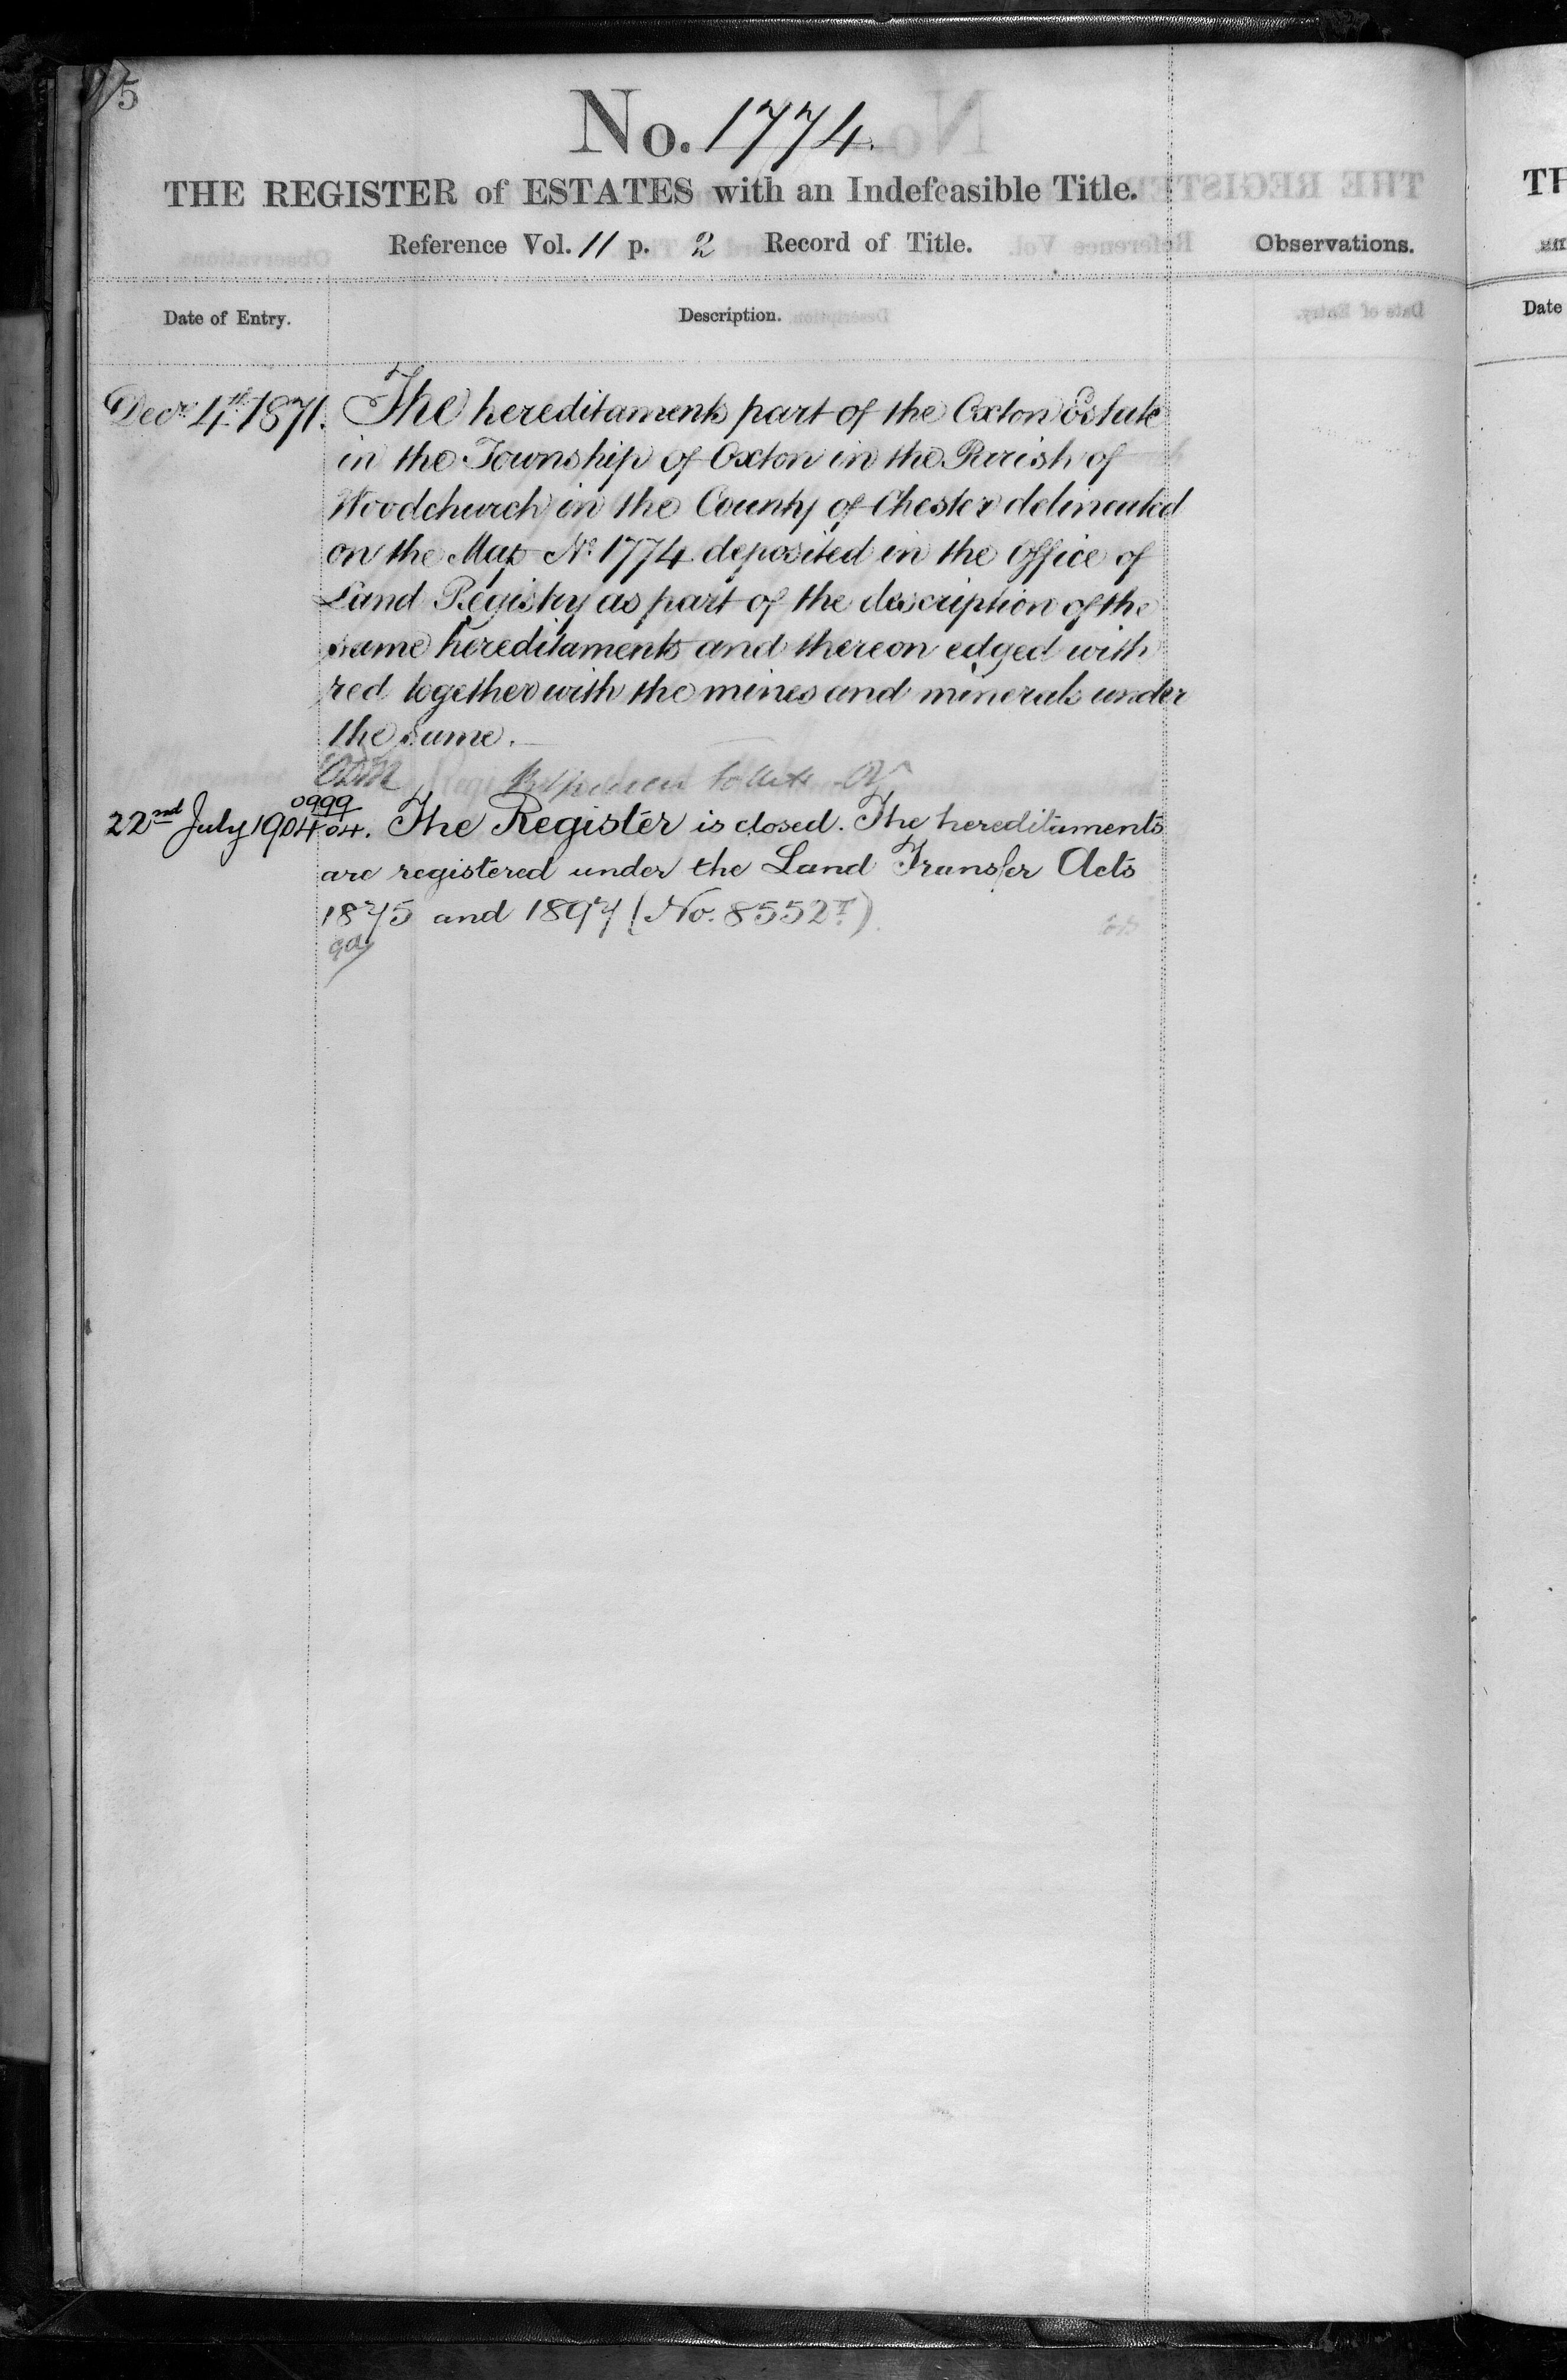 5
No. 1774.
THE REGISTER of ESTATES with an Indefeasible Title.
Reference Vol. 11 p. 2 Record of Title.
Observations.
Date of Entry.
Description.
Decr. 4th. 1871. The hereditaments part of the Oxton Estate
in the Township of Oxton in the Parish of
Woodchurch in the County of Chester delineated
on the Map No. 1774 deposited in the Office of
Land Registry as part of the description of the
same hereditaments and thereon edged with
red together with the mines and minerals under
the same.
0999
22nd July 1904 04. The Register is closed. The hereditaments
are registered under the Land Transfer Acts
1875 and 1897 (No. 8552T).
TH
Date